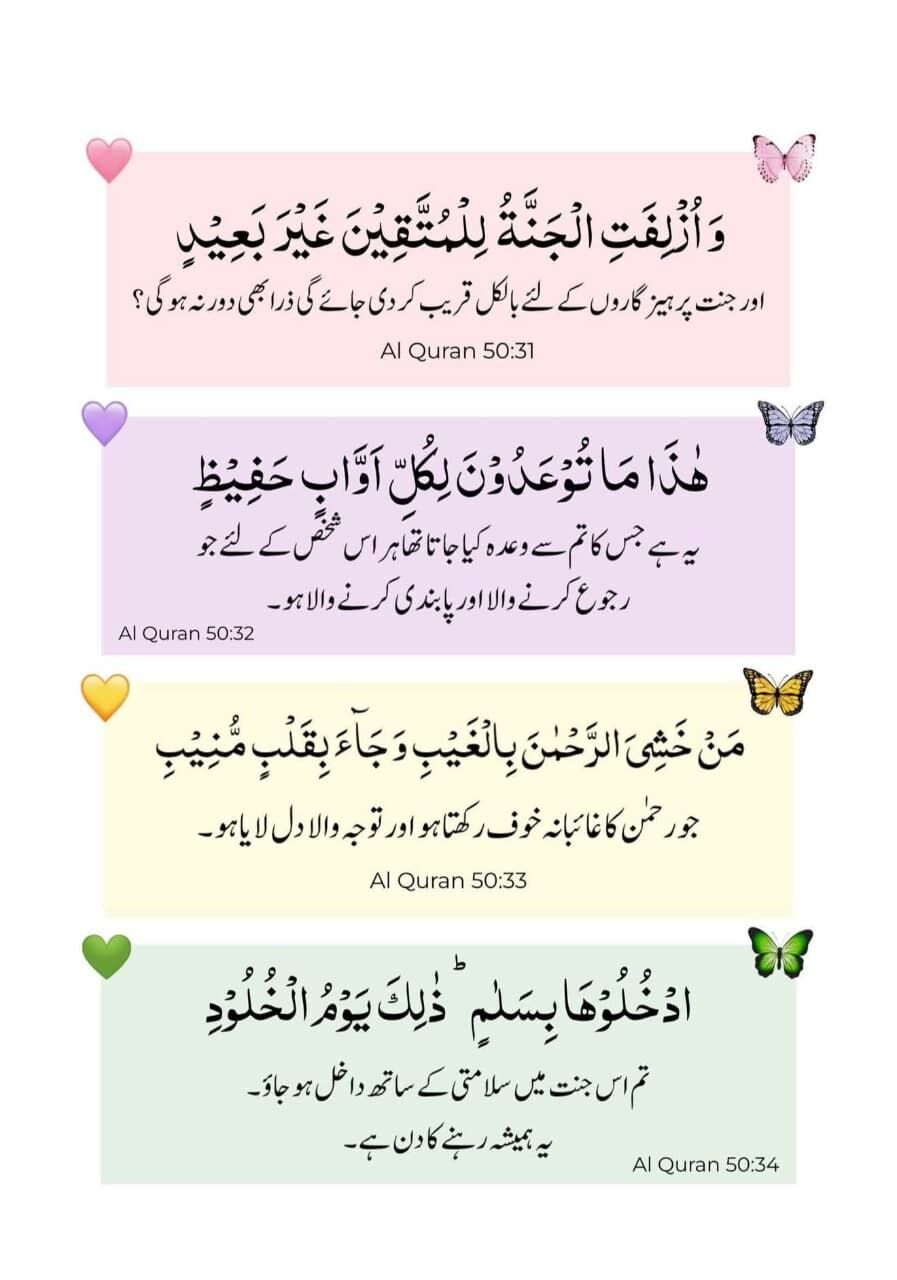 وَاُزۡلِفَتِ الۡجَـنَّةُ لِلۡمُتَّقِيۡنَ غَيۡرَ بَعِيۡدٍ
اور جنت پرہیز گاروں کے لئے بالکل قریب کر دی جائے گی ذرا بھی دور نہ ہو گی؟
Al Quran 50:31
هٰذَا مَا تُوۡعَدُوۡنَ لِكُلِّ اَوَّابٍ حَفِيۡظٍ
یہ ہے جس کا تم سے وعدہ کیا جاتا تھا ہر اس شخص کے لئے جو
رجوع کرنے والا اور پابندی کرنے والا ہو۔
Al Quran 50:32
مَنۡ خَشِىَ الرَّحۡمٰنَ بِالۡغَيۡبِ وَجَآءَ بِقَلۡبٍ مُّنِيۡبِ
جو رحمٰن کا غائبانہ خوف رکھتا ہو اور توجہ والا دل لایا ہو۔
Al Quran 50:33
ادۡخُلُوۡهَا بِسَلٰمٍؕ ذٰلِكَ يَوۡمُ الۡخُلُوۡدِ
تم اس جنت میں سلامتی کے ساتھ داخل ہو جاؤ۔
یہ ہمیشہ رہنے کا دن ہے۔
Al Quran 50:34